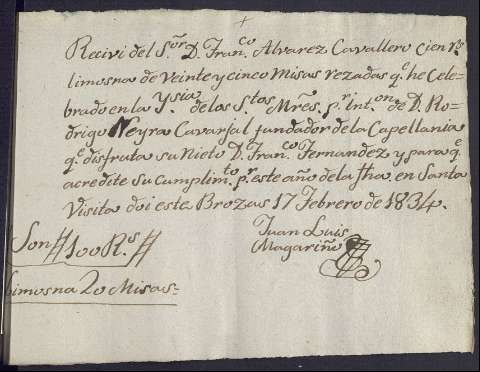 +
Recivi del S.or D. Fran.co Alvarez Cavallero cien r.s
limosna de Veinte y cinco Misas rezadas q.e he Cele-
brado en la Ygsia. de los S.tos Mres. p.r int.on de D. Ro-
drigo Neyra Carvajal fundador de la Capellania
q.e disfruta su Nieto D. Fran.co Fernandez y para q.e
acredite su Cumplim.to p.r este año de la fha. en Santa
Visita doi este Brozas 17 Febrero de 1834.
Juan Luis
Magariño
Son # 100 R.s #
Limosna 20 Misas=